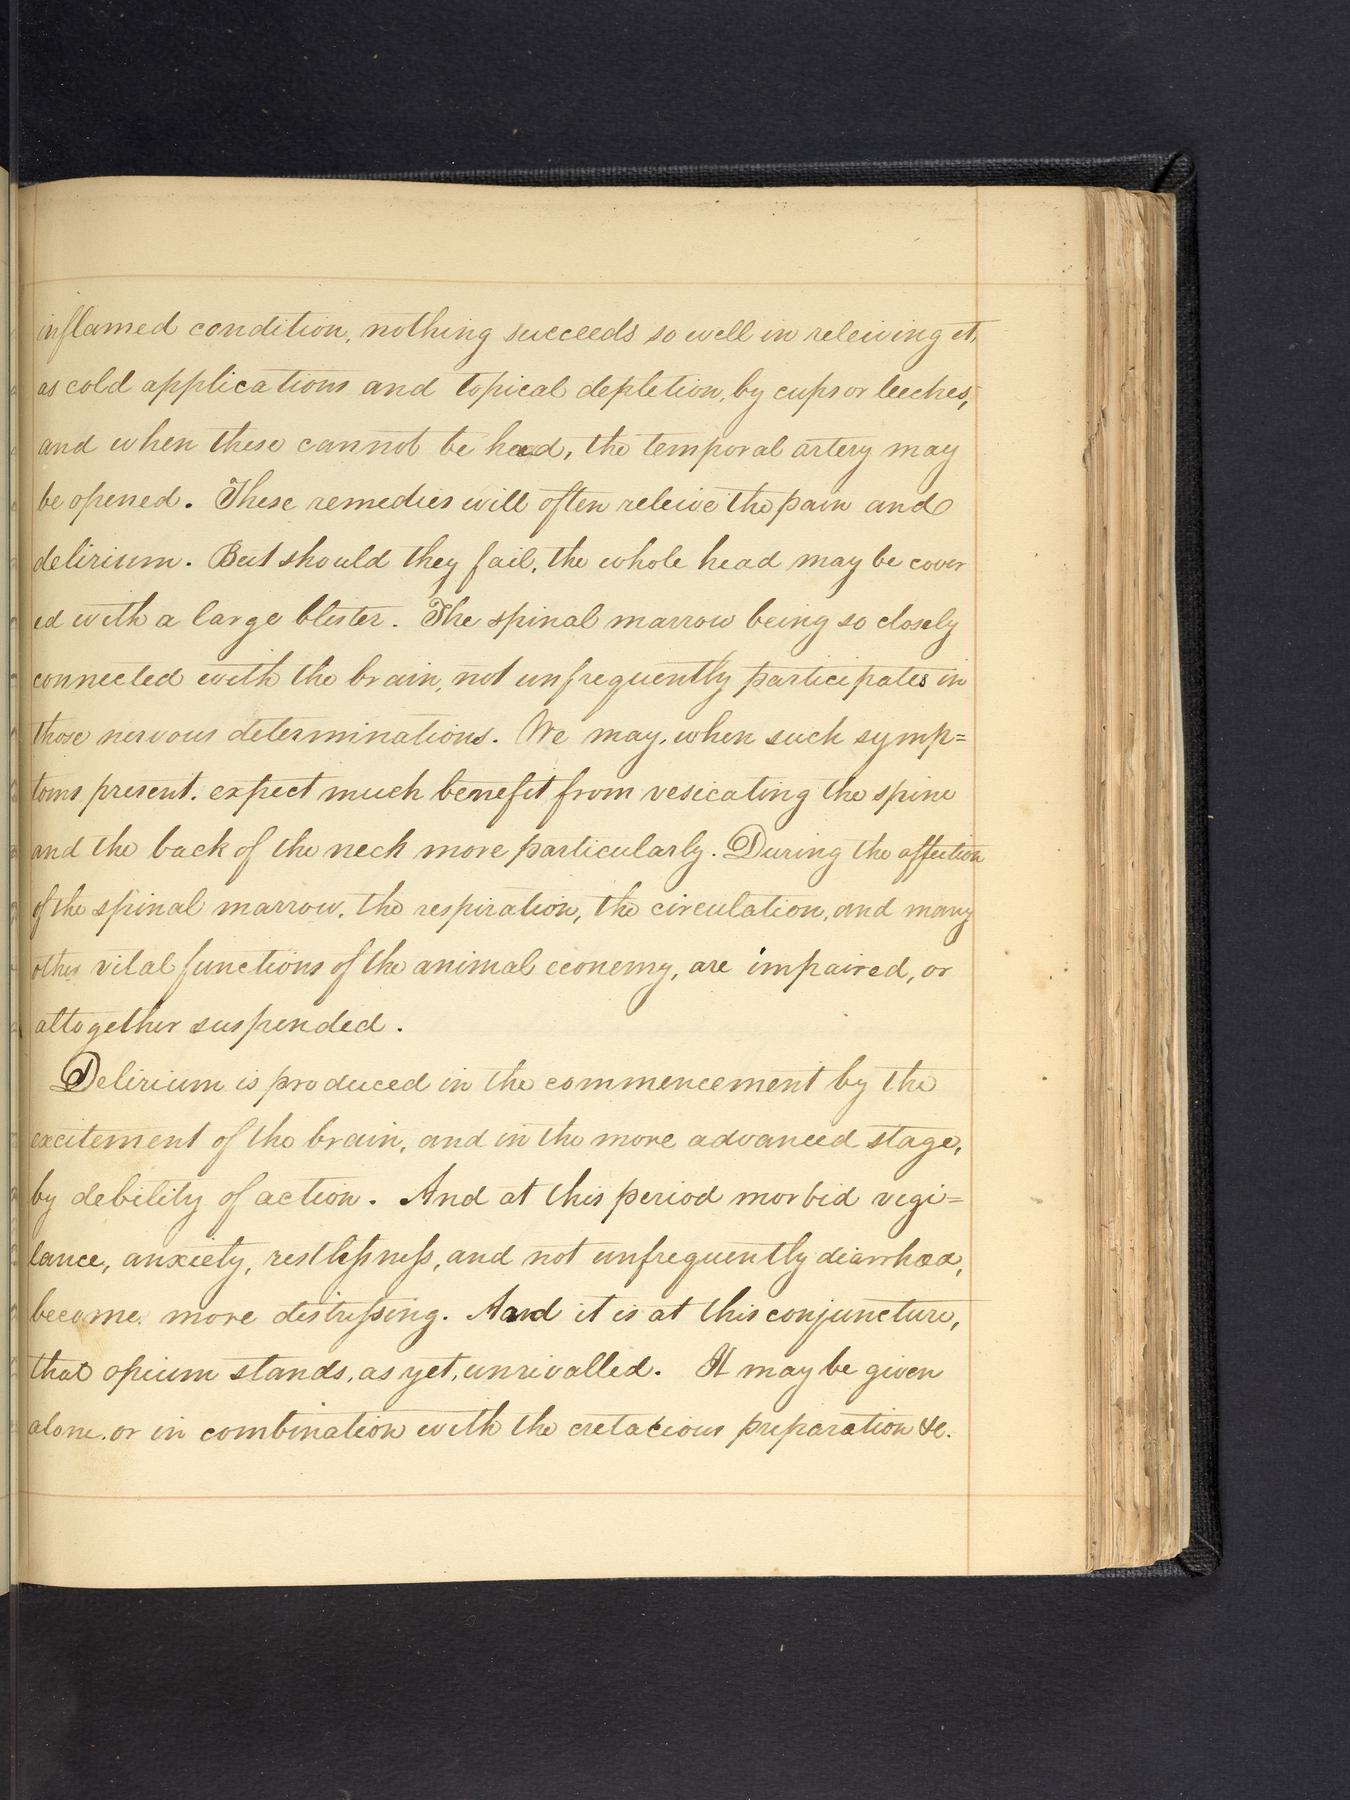 inflamed condition, nothing succeeds so well in releiving it,
as cold applications and topical depletion, by cups or leeches,
and when these cannot be had, the temporal artery may
be opened. These remedies will often releive the pain and
delirium. But should they fail, the whole head may be cover
ed with a large blister. The spinal marrow being so closely
connected with the brain, not unfrequently participates in
those nervous determinations. We may, when such symp=
toms present, expect much benefit from vesicating the spine
and the back of the neck more particularly. During the affection
of the spinal marrow, the respiration, the circulation, and many
other vital functions of the animal economy, are impaired, or
altogether suspended.
Delirium is produced in the commencement by the
excitement of the brain, and in the more advanced stage,
by debility of action. And at this period morbid vigi=
lance, anxiety, restlessness, and not unfrequently diarrhœa,
become more distressing. And it is at this conjuncture,
that opium stands, as yet, unrivalled. It may be given
alone, or in combination with the cretacious preparation &c.